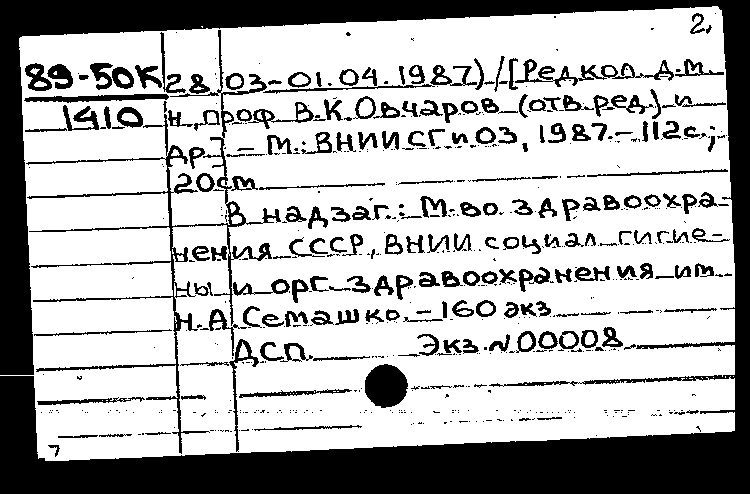 2.
89-50К 28.03-01.04.1987)/[Редкол. д.м.
1410 н., проф В.К.Овчаров (отв.ред.) и
др.] - М.: ВНИИСГиОЗ, 1987.- 112с.;
20см
В надзаг.: М-во. здравоохра-
нения СССР, ВНИИ социал гигие-
ны и орг. здравоохранения им
Н.А.Семашко.-160 экз
ДСП. Экз.№00008
7